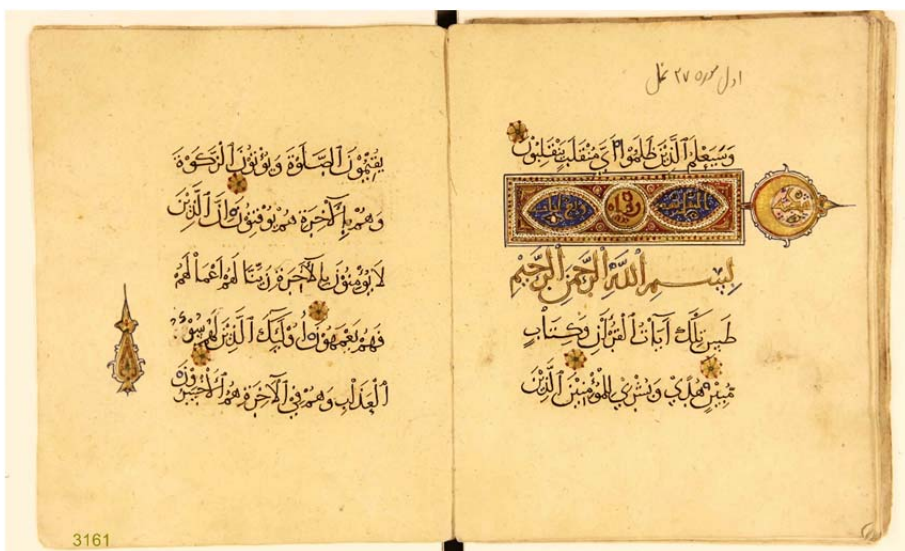 اول سوره ۲۷ نمل
وَسَيَعْلَمُ الَّذِينَ ظَلَمُوا أَيَّ مُنْقَلَبٍ يَنْقَلِبُونَ
بِسْمِ اللَّهِ الرَّحْمَنِ الرَّحِيمِ
طس تِلْكَ آيَاتُ الْقُرْآنِ وَكِتَابٍ
مُبِينٍ هُدًى وَبُشْرَى لِلْمُؤْمِنِينَ الَّذِينَ
يُقِيمُونَ الصَّلَوةَ وَيُؤْتُونَ الزَّكَوةَ
وَهُمْ بِالْآخِرَةِ هُمْ يُوقِنُونَ إِنَّ الَّذِينَ
لَا يُؤْمِنُونَ بِالْآخِرَةِ زَيَّنَّا لَهُمْ أَعْمَالَهُمْ
فَهُمْ يَعْمَهُونَ أُولَئِكَ الَّذِينَ لَهُمْ سُوءُ
الْعَذَابِ وَهُمْ فِي الْآخِرَةِ هُمُ الْأَخْسَرُونَ
3161